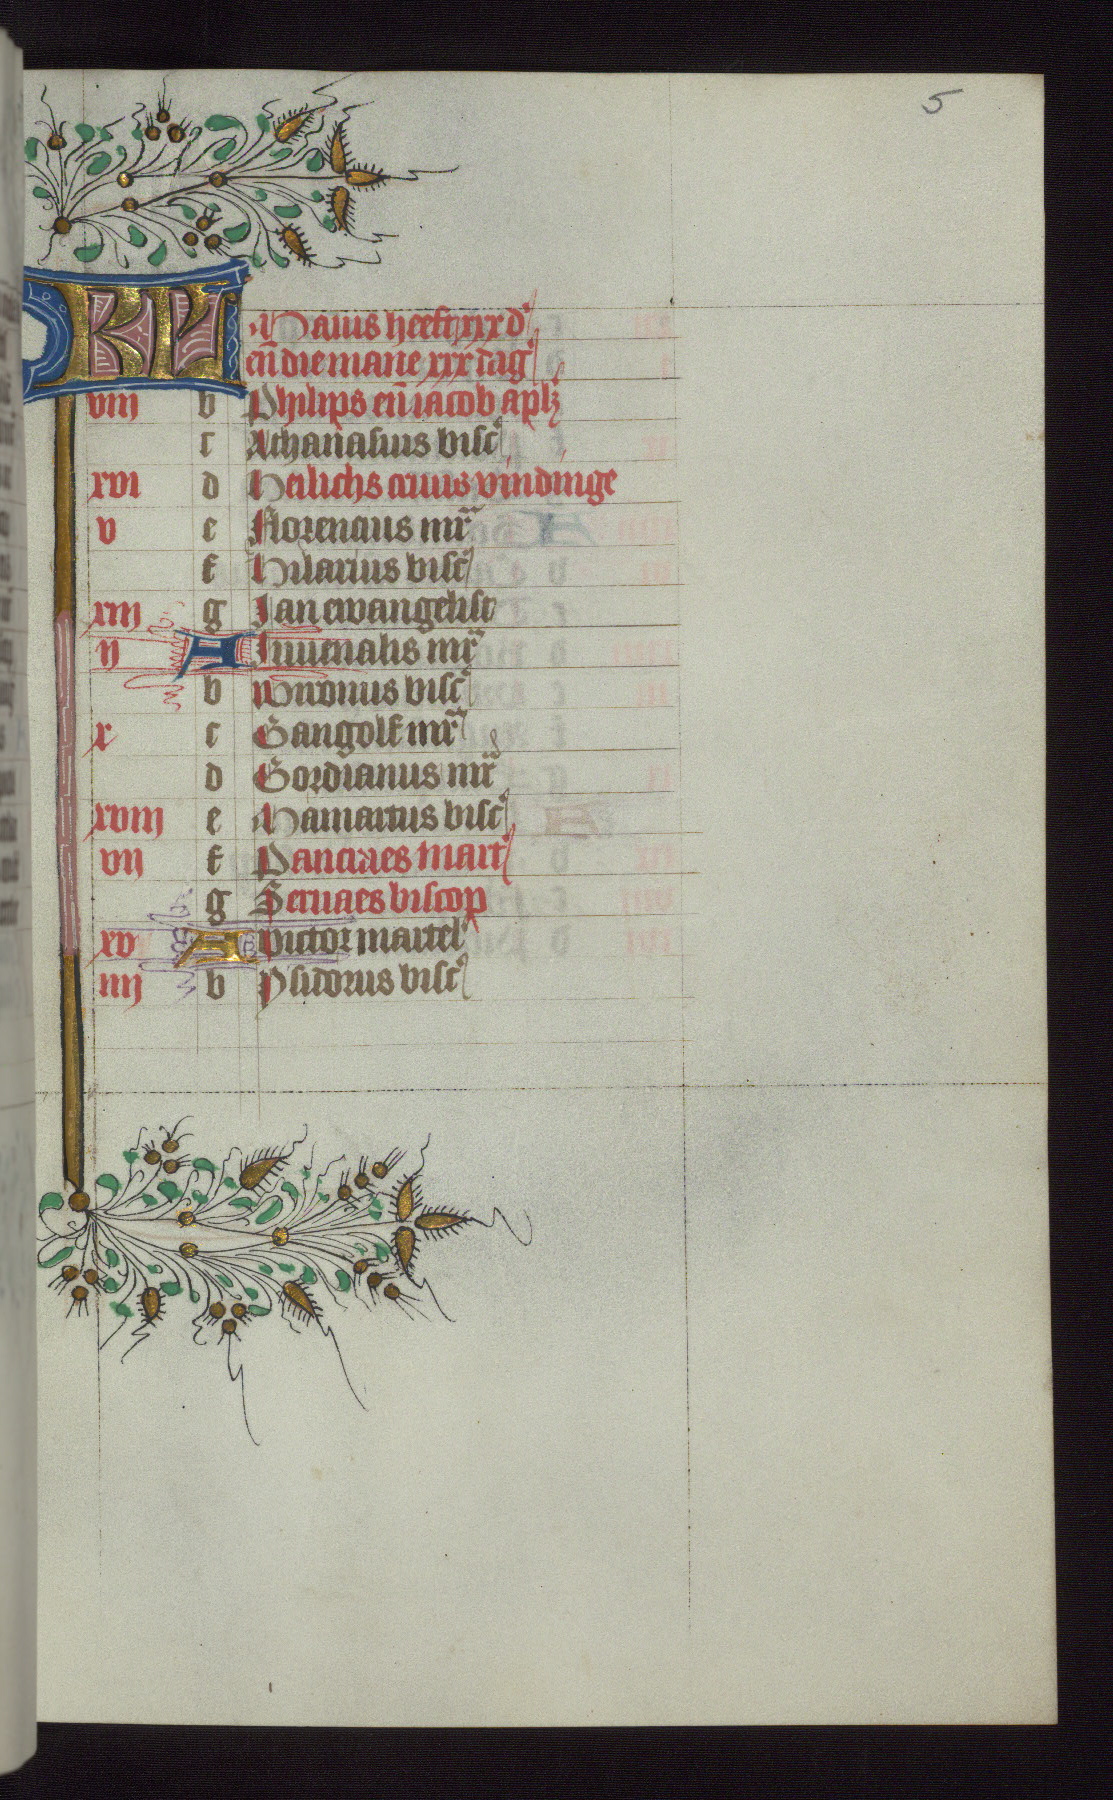 5
KL Maius heeft xxxi d'
en̄ die mane xxx dag'
viii b Philips en̄ iacob apl'z
c Athanasius bisc'
xvi d Heilichs cruus vindinge
v e Florencius mr'
f Hilarius bisc'
xiii g Jan ewangelist
ii A Juuenalis mr'
b bisc'
x c Gangolf mr'
d Gordianus mr'
xviii e Mamartus bisc'
vii f Pancraes mart'
g Seruaes biscop
xv A Victor martel'
iiii b Ysidorus bisc'